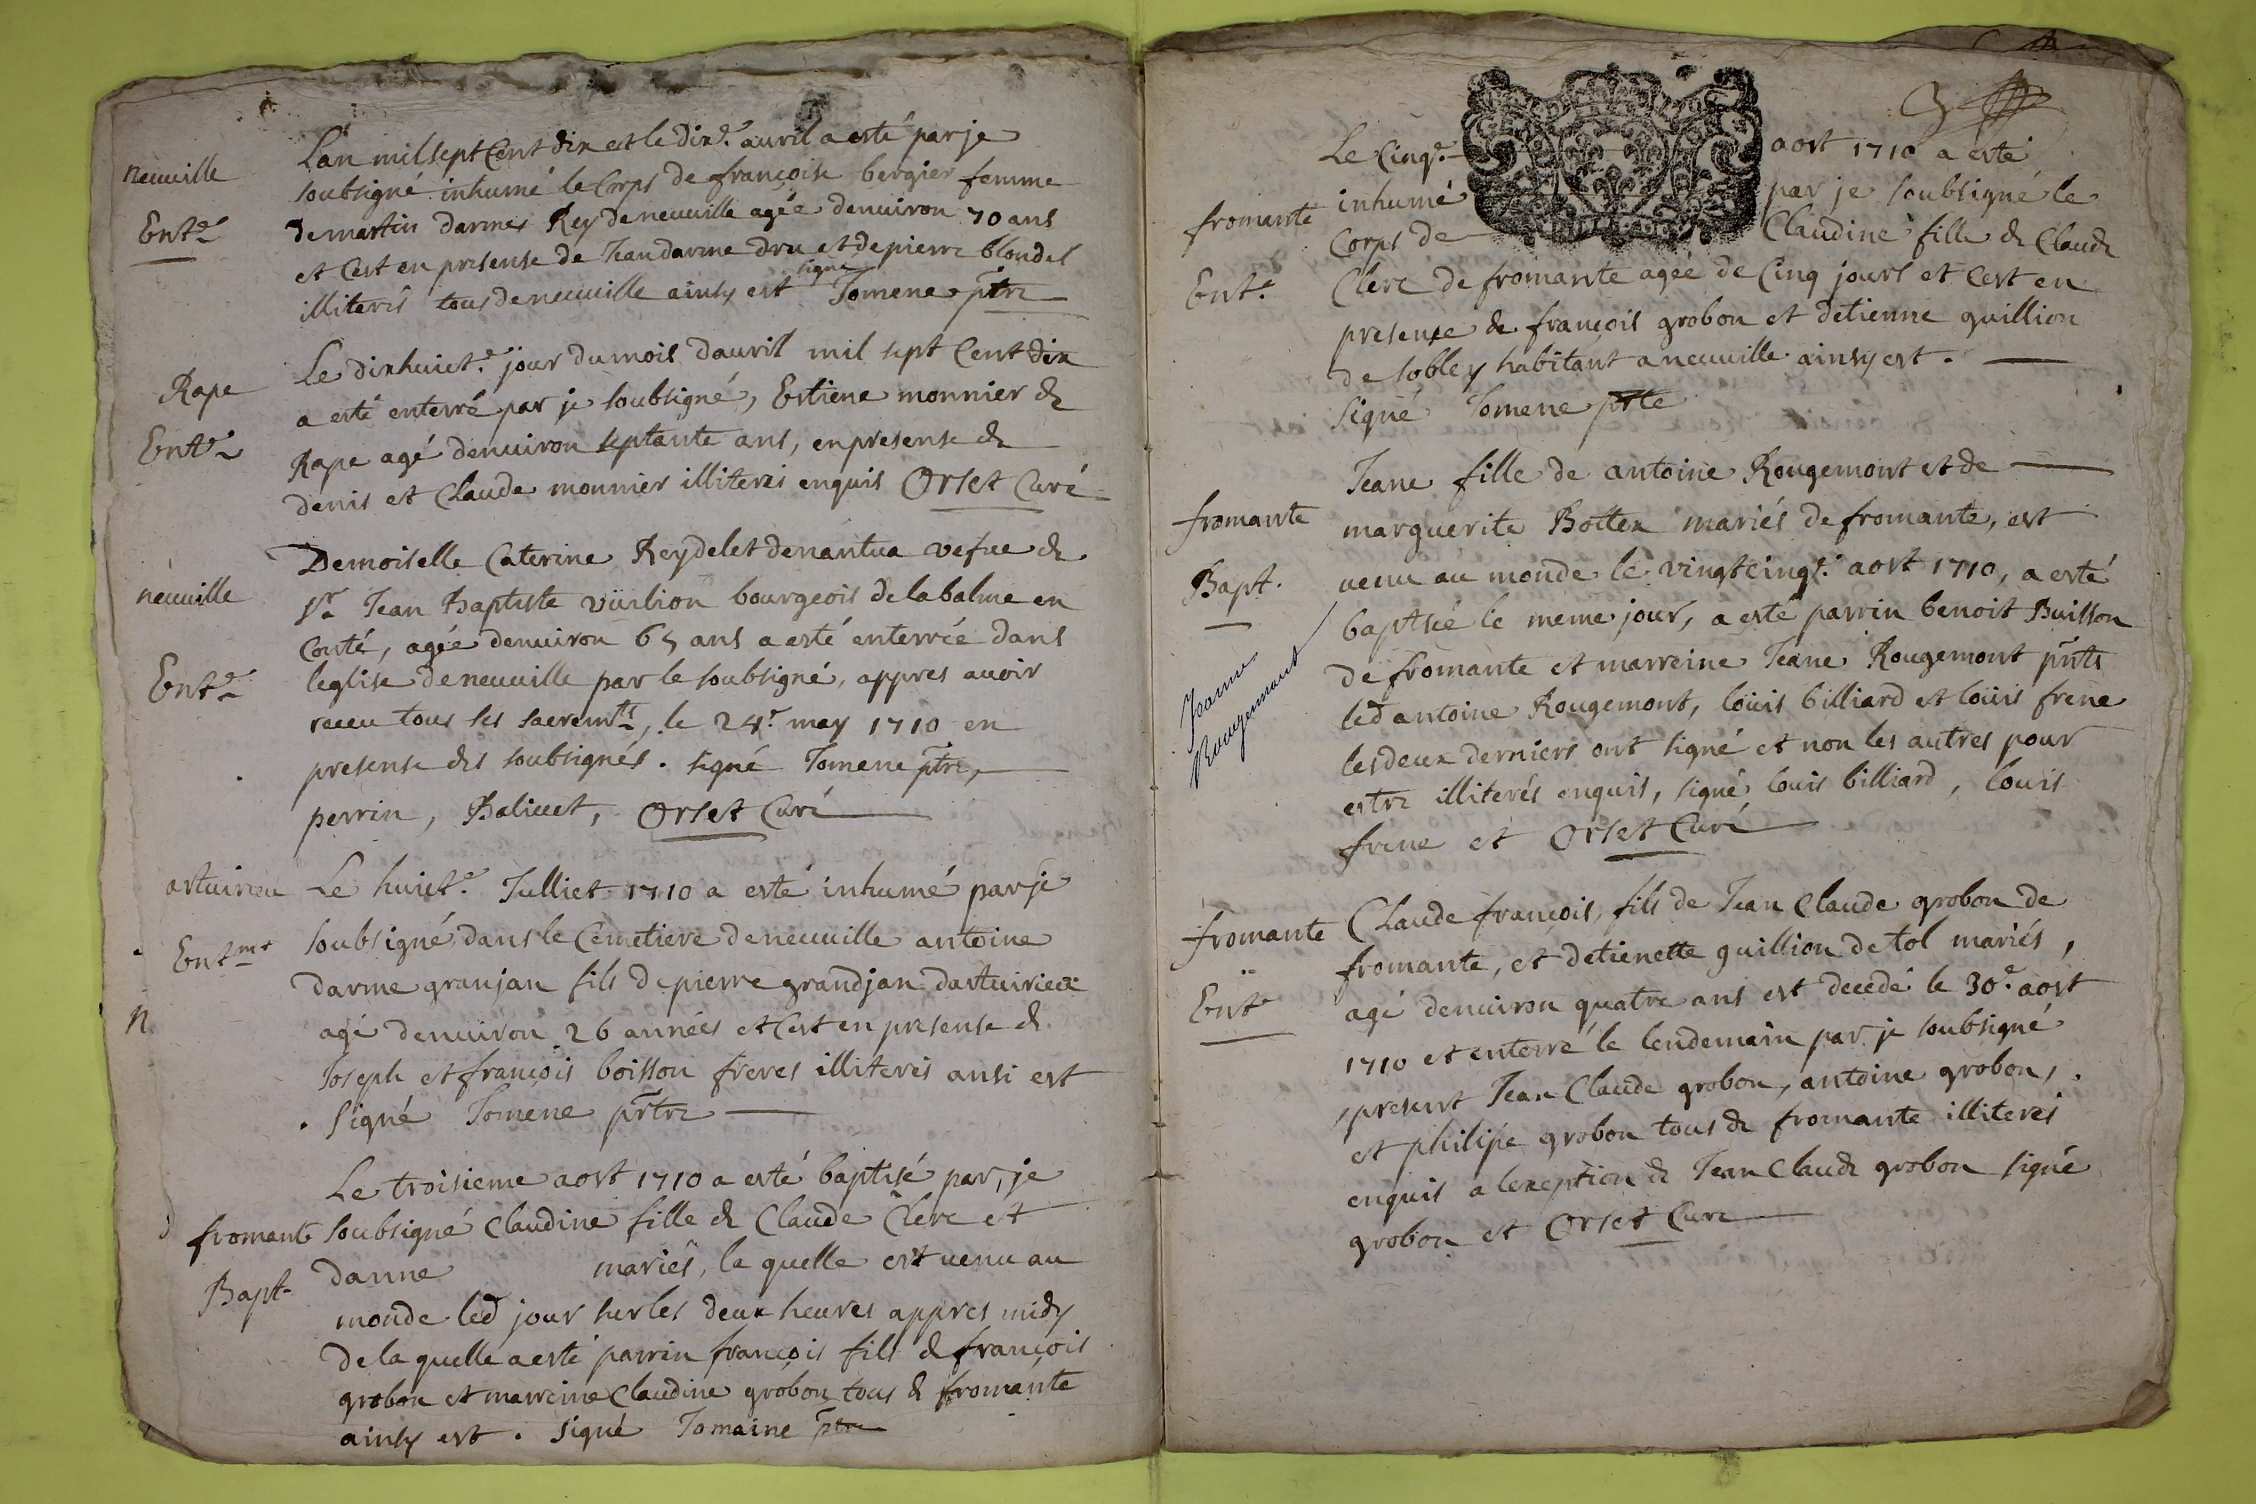 neuuille
Entr.
Lan mil sept Cent dix et le dix.e auril a esté par je
soubsigné inhumé le Corps de françoise bergier femme
de martin darmes Rey de neuuille agée denuiron 70 ans
et Cest en presense de Jean darme dru et de pierre blondel
illiterés tous de neuuille ainsy est signé Tomene ptre
Rape
Entr.
Le dixhuict.e jour du mois dauril mil sept Cent dix
a esté enterré par je soubsigné, Estiene monnier de
Rape agé denuiron septante ans, en presense de
denis et Claude monnier illiterés enquis Orset Curé
neuuille
Entr.
Demoiselle Caterine Reydelet denantua vefue de
Sr Jean Baptiste vüilion bourgeois de labalme en
Conté, agée denuiron 65 ans a esté enterrée dans
leglise de neuuille par le soubsigné, appres auoir
receu tous ses sacremts, le 24e may 1710 en
presense des soubsignés. signé Tomene ptre,
perrin, Baliuet, Orset Curé
artuirieu
Entmt
n
Le huict.e Julliet 1710 a esté inhumé par je
soubsigné dans le Cemetiere de neuuille antoine
darme granjan fils de pierre grandjan dartuirieux
agé denuiron 26 années et Cest en presense de
Joseph et françois boisson freres illiterés ansi est
signé Tomene prtre
fromante
Bapt.
Le troisieme aost 1710 a esté baptisé par, je
soubsigné Claudine fille de Claude Clerc et
danne mariés, la quelle est venu au
monde led jour sur les deux heures appres midy
de la quelle a esté parrin françois fils de françois
grobon et marreine Claudine grobon tous de fromante
ainsy est. signé Tomaine ptre
fromante
Ent.e
Le Cinq.e aost 1710 a esté
inhumé par je soubsigné le
Corps de Claudine fille de Claude
Clerc de fromante agée de Cinq jours et Cest en
presense de françois grobon et detienne guillion
de sobley habitant a neuuille ainsy est.
signé Tomene prte
fromante
Bapt.
Jeanne
Rougemont
Jeane fille de antoine Rougemont et de
marguerite Bottex mariés de fromante, est
venu au monde le vingtcinq.e aost 1710, a esté
baptsée le meme jour, a esté parrin benoit Buisson
de fromante et marreine Jeane Rougemont pnts
led antoine Rougemont, loüis billiard et loüis frene
les deux derniers ont signé et non les autres pour
estre illiterés enquis, signé, louis billiard, louis
frene et Orset Curé
fromante
Ent.e
Claude françois, fils de Jean Claude grobon de
fromante, et detienette guillion de tol mariés,
agé denuiron quatre ans est decedé le 30.e aost
1710 et enterré le lendemain par je soubsigné
, present Jean Claude grobon, antoine grobon,
et philipe grobon tous de fromante illiterés
enquis a lexeption de Jean Claude grobon signé
grobon et Orset Curé